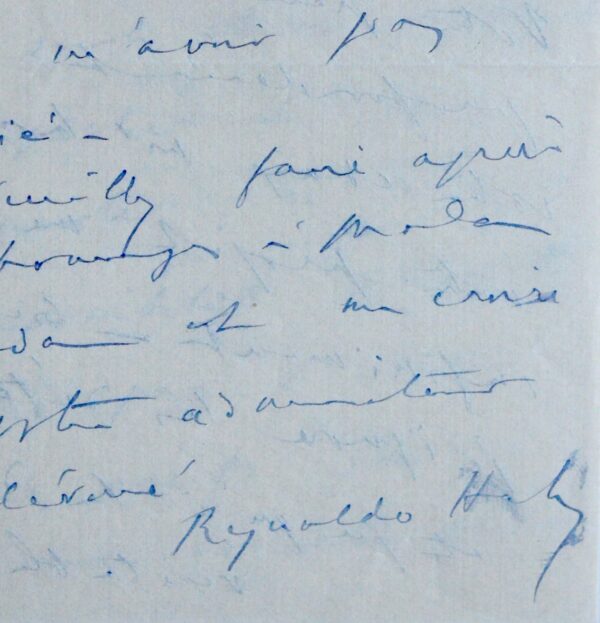 m'avoir pas
ié –
faire agréer
hommages à Madam
et me croire
votre admirateur
dévoué
Reynaldo Hahn